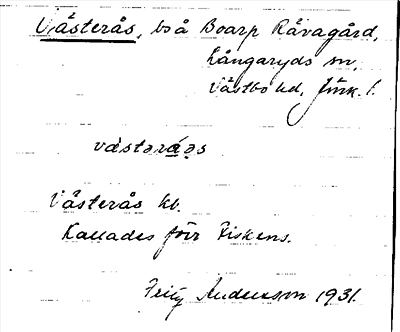 Västerås, bs å Boarp Råvagård,
Långaryds sn,
Västbo hd, Jönk. l.
västərá̱ə̣s
Västerås kb.
Kallades förr Fiskens.
Fritz Anderson 1931.